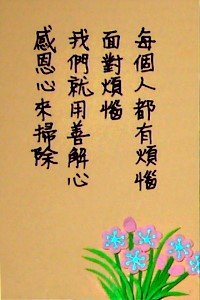 每個人都有煩惱
面對煩惱
我們就用善解心
感恩心來掃除